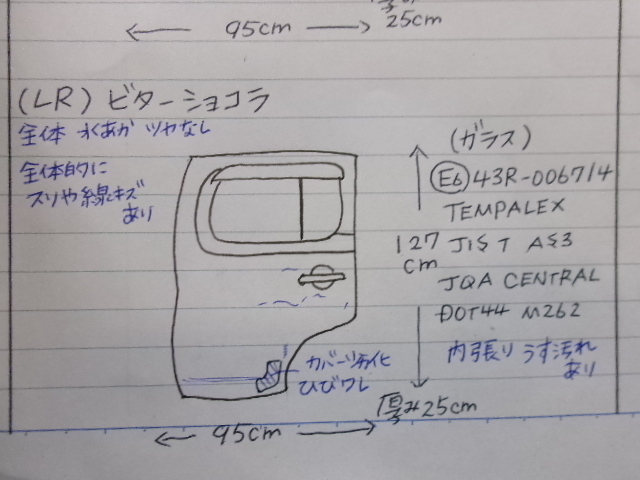 95cm
25cm
(LR) ビターショコラ
全体 水あか ツヤなし
全体的に
スリや線キズ
あり
(ガラス)
E6 43R-006714
TEMPALEX
127
cm
JIS T AS3
JQA CENTRAL
DOT44 M262
内張り うす汚れ
あり
カバー劣化
ひびワレ
厚み25cm
95cm